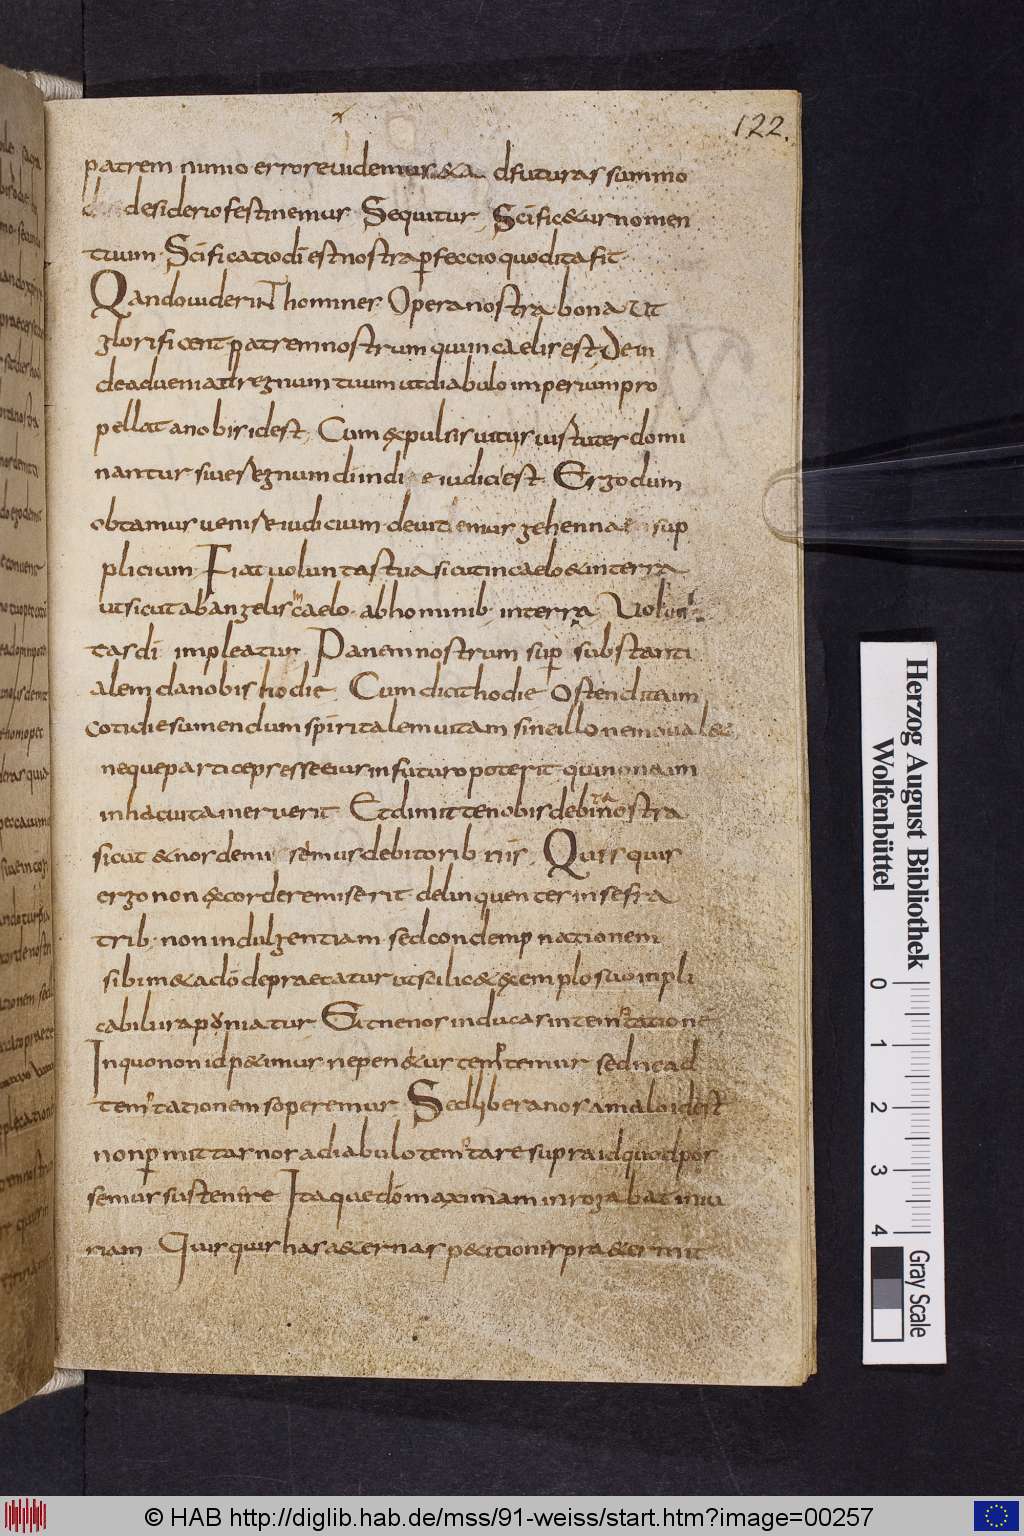 122.
patrem nimio errore uidemur & ad futuras summo
desiderio festinemur Sequitur. Scific&ur nomen
tuum. Scificatio di est nostra perfeccio quod ita fit
Qando uiderint homines Opera nostra bona ut
glorificent patrem nostrum qui in caelis est Dein
de adueniat regnum tuum ut diabulo imperium pro
pellat a nobis id est, Cum expulsis uitiis uirtuter domi
nantur siue regnum di indie iudicii est Ergo dum
obtamur uenire iudicium deuitemur gehennae sup
plicium Fiat uoluntas tua sicut in caelo & in terra
ut sicut ab angelis in caelo. ab hominib; in terra Uolun
tas di impleatur Panem nostrum super substanti
alem da nobis hodie Cum dicit hodie Ostendit eum
cotidie sumendum spiritalem uitam sine illo nemo ual&
neque particeps esse eius in futuro poterit qui non eam
in hac uita meruerit Et dimitte nobis debita nostra
sicut & nos demisemus debitorib nris. Quis quis
ergo non ex corde remiserit delinquenter in se fra
trib; non indulgentiam sed condempnationem
sibim& a do depraecatur ut scilic& exemplo suo inpli
cabilius a poniatur Et ne nos inducas in temptatione
In quo non id p&imur ne pen&ur temptemur sed ne ad
temptationem soperemur Sed libera nos a malo id est
non permittas nos a diabulo temptare supra id quod pos
semus sustenere Itaque dom maximam inrogabat iniu
riam Quis quis has a&ernas p&itiones pra&ermit
Herzog August Bibliothek
Wolfenbüttel
0 1 2 3 4
Gray Scale
© HAB http://diglib.hab.de/mss/91-weiss/start.htm?image=00257